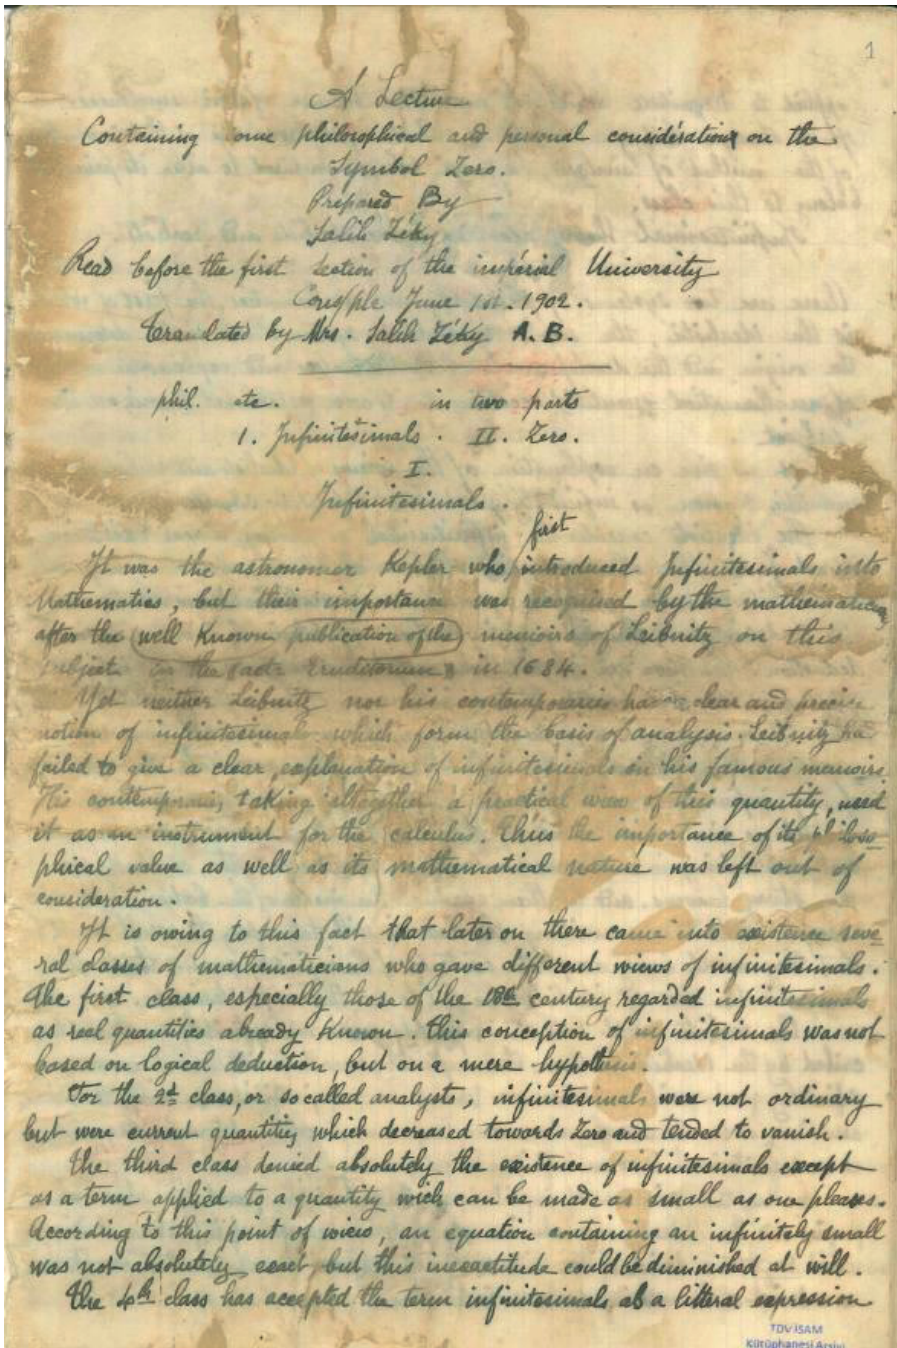 1
A Lecture
Containing some philosophical and personal considérations on the
Symbol Zero.
Prepared By
Salih Zéky
Read before the first Section of the impérial University
Con/ple June 1st. 1902.
Translated by Mrs. Salih Zéky A. B.
phil. etc. in two parts
1. Infinitesimals. II. Zero.
I.
Infinitesimals.
first
It was the astronomer Kepler who introduced Infinitesimals into
Mathematics, but their importance was recognised by the mathematicians
after the well Known publication of the memoirs of Leibnitz on this
subject in the acta Eruditorum in 1684.
Yet neither Leibnitz nor his contemporaries had clear and precise
notion of infinitesimals which form the basis of analysis. Leibnitz had
failed to give a clear explanation of infinitesimals in his famous memoirs.
His contemporaries, taking altogether a practical view of this quantity, used
it as an instrument for the calculus. Thus the importance of its philoso-
phical value as well as its mathematical nature was left out of
consideration.
It is owing to this fact that later on there came into existence seve-
ral classes of mathematicians who gave different views of infinitesimals.
The first class, especially those of the 18th century regarded infinitesimals
as real quantities already Known. This conception of infinitesimals was not
based on logical deduction, but on a mere hypothesis.
For the 2d class, or so called analysts, infinitesimals were not ordinary
but were current quantities which decreased towards Zero and tended to vanish.
The third class denied absolutely the existence of infinitesimals except
as a term applied to a quantity wich can be made as small as one pleases.
According to this point of view, an equation containing an infinitely small
was not absolutely exact, but this inexactitude could be diminished at will.
The 4th class has accepted the term infinitesimals as a litteral expression
TDV İSAM
Kütüphanesi Arşivi